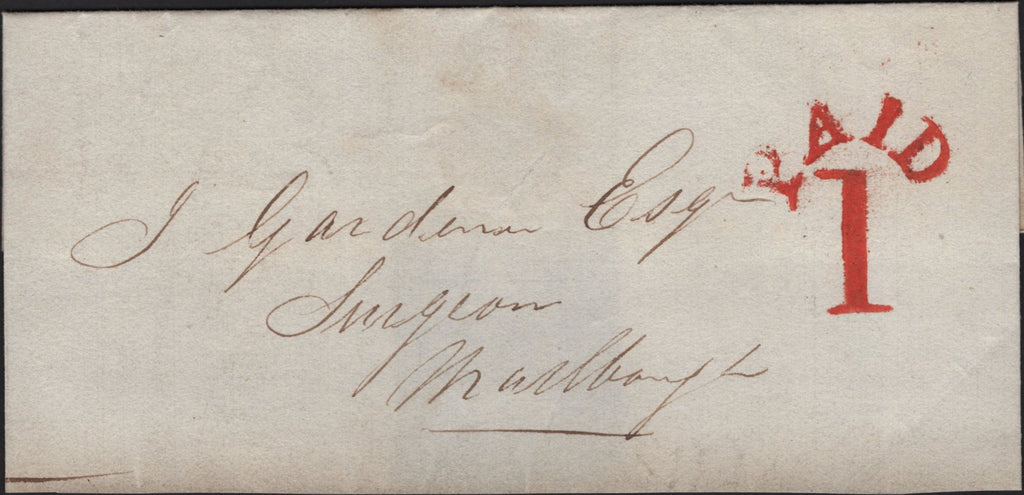 PAID
1
J Gardener Esqr
Surgeon
Marlbough